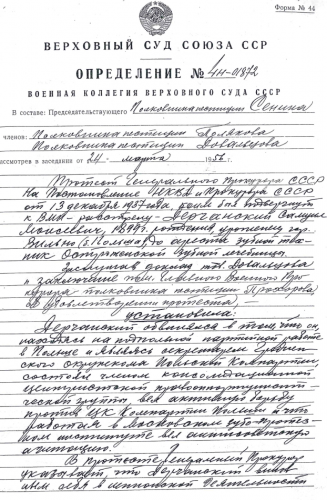 Форма № 44
ВЕРХОВНЫЙ СУД СОЮЗА ССР
ОПРЕДЕЛЕНИЕ № 4н-01872
ВОЕННАЯ КОЛЛЕГИЯ ВЕРХОВНОГО СУДА СССР
В составе: Председательствующего Полковника юстиции Сенина
членов: Полковника юстиции
Полковника юстиции
рассмотрев в заседании от 24 марта 1956 г.
Протест Генерального Прокурора СССР
На Постановление НКВД и Прокурора СССР
от 13 декабря 1937 года, коим был подвергнут
к ВМН - расстрелу - Дерчанский Самуил
Моисеевич, 1899 г. рождения уроженец гор.
Вильно (б. Польша) до ареста зубной тех-
ник зубной лечебницы.
Заслушав доклад тов.
и заключение пом. Главного Военного Про-
курора полковника юстиции Прохорова
об удовлетворении протеста -
установила:
Дерчанский обвинялся в том, что он,
находясь на подпольной партийной работе
в Польше и являясь секретарем
окружкома Польской Компартии,
состоял членом
центристской правооппортунистиче-
ской группы, вел активную борьбу
против ЦК Компартии Польши и что
работая в Московском зубо-протез-
ном институте вел антисоветскую
агитацию.
В протесте Генеральный Прокурор
указывает, что Дерчанский винов-
ным себя в шпионской деятельности